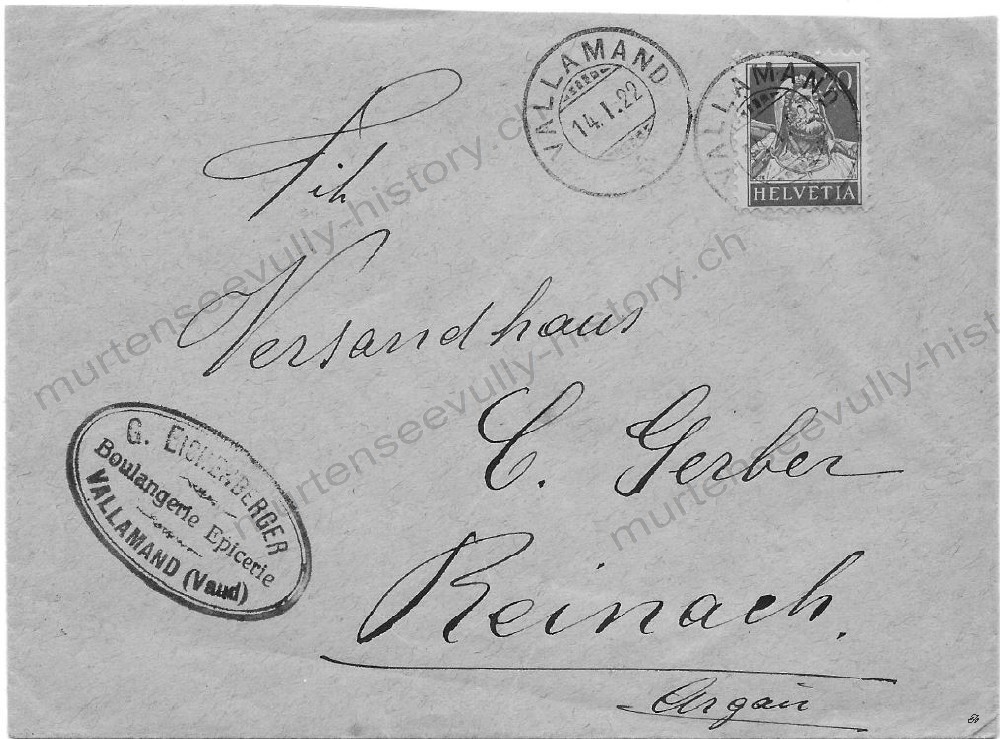 VALLAMAND
14.I.22
VALLAMAND
0
HELVETIA
Versandhaus
C. Gerber
Reinach.
Argau
G. EICHENBERGER
Boulangerie Epicerie
VALLAMAND (Vaud)
murtenseevully-history.ch
murtenseevully-history.ch
murtenseevully-history